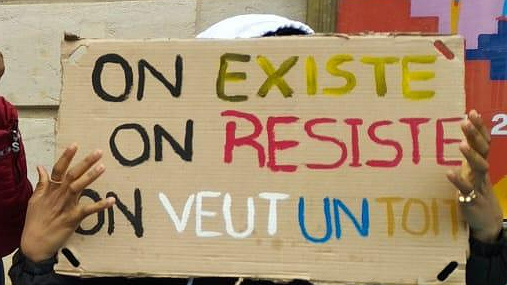 ON EXISTE
ON RESISTE
ON VEUT UN TOIT